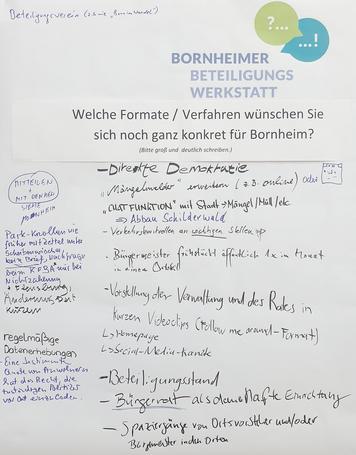 Beteiligungsverein (z.B. wie "Bonn im Wandel")
?...
...!
BORNHEIMER
BETEILIGUNGS
WERKSTATT
Welche Formate / Verfahren wünschen Sie
sich noch ganz konkret für Bornheim?
(Bitte groß und deutlich schreiben.)
- Direkte Demokratie
"Mängelmelder" erweitern (z.B. online) oder
"CHATFUNKTION" mit Stadt → Mängel/Müll/etc
⇒ Abbau Schilderwald
- Verkehrskontrollen an wichtigen Stellen
- Bürgermeister frühstückt öffentlich 1x im Monat
in einem Ortsteil
- Vorstellung der Verwaltung und des Rates in
kurzen Videoclips (Follow me around-Format)
↳ Homepage
↳ Social-Media-Kanäle
- Beteiligungsstand
- Bürgerrat als dauerhafte Einrichtung
- Spaziergänge von Ortsvorsteher und/oder
Bürgermeister in den Orten
MITTEILEN
+
MIT DENKEN
SIEHE
MANNHEIM
Park-Knollen wie
früher mit Zettel unter
Scheibenwischer,
kein Brief, Nachfrage
beim KFBA nur bei
Nichtzahlung
regelmäßige
Datenerhebungen
- Eine bestimmte
Quote von Anwohnern
hat das Recht, die
zuständigen Politiker
vor Ort einzuladen.